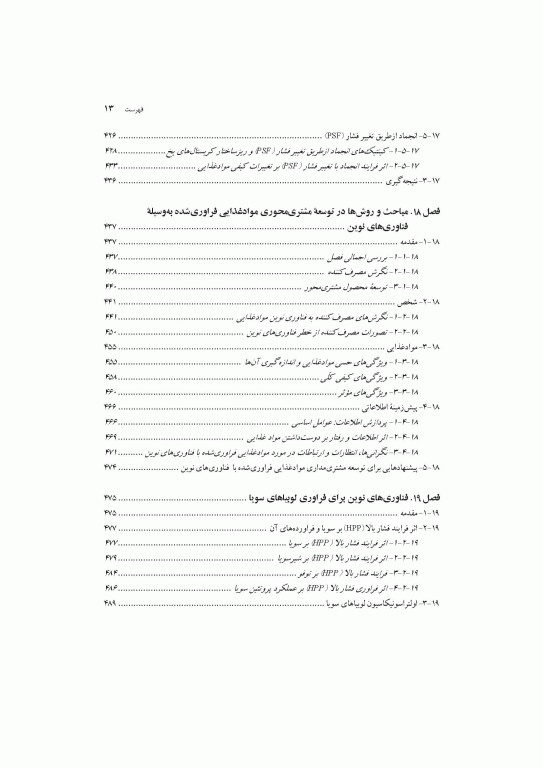 فهرست ۱۳
۱۷-۵- انجماد ازطریق تغییر فشار (PSF) ........ ۴۲۶
۱۷-۵-۱- کینتیک‌های انجماد ازطریق تغییر فشار (PSF) و ریزساختار کریستال‌های یخ ........ ۴۲۸
۱۷-۵-۲- اثر فرایند انجماد با تغییر فشار (PSF) بر تغییرات کیفی موادغذایی ........ ۴۳۳
۱۷-۳- نتیجه‌گیری ........ ۴۳۶
فصل ۱۸. مباحث و روش‌ها در توسعهٔ مشتری‌محوری موادغذایی فراوری‌شده به‌وسیلهٔ
فناوری‌های نوین ........ ۴۳۷
۱۸-۱- مقدمه ........ ۴۳۷
۱۸-۱-۱- بررسی اجمالی فصل ........ ۴۳۷
۱۸-۱-۲- نگرش مصرف‌کننده ........ ۴۳۸
۱۸-۱-۳- توسعهٔ محصول مشتری‌محور ........ ۴۴۰
۱۸-۲- شخص ........ ۴۴۱
۱۸-۲-۱- نگرش‌های مصرف‌کننده به فناوری نوین موادغذایی ........ ۴۴۱
۱۸-۲-۲- تصورات مصرف‌کننده از خطر فناوری‌های نوین ........ ۴۵۰
۱۸-۳- موادغذایی ........ ۴۵۵
۱۸-۳-۱- ویژگی‌های حسی موادغذایی و اندازه‌گیری آن‌ها ........ ۴۵۵
۱۸-۳-۲- ویژگی‌های کیفی کلّی ........ ۴۵۸
۱۸-۳-۳- ویژگی‌های مؤثر ........ ۴۶۰
۱۸-۴- پیش‌زمینهٔ اطلاعاتی ........ ۴۶۶
۱۸-۴-۱- پردازش اطلاعات: عوامل اساسی ........ ۴۶۶
۱۸-۴-۲- اثر اطلاعات و رفتار بر دوست‌داشتن مواد غذایی ........ ۴۶۹
۱۸-۴-۳- نگرانی‌ها، انتظارات و ارتباطات در مورد موادغذایی فراوری‌شده با فناوری‌های نوین ........ ۴۷۱
۱۸-۵- پیشنهادهایی برای توسعه مشتری‌مداری موادغذایی فراوری‌شده با فناوری‌های نوین ........ ۴۷۴
فصل ۱۹. فناوری‌های نوین برای فراوری لوبیاهای سویا ........ ۴۷۵
۱۹-۱- مقدمه ........ ۴۷۵
۱۹-۲- اثر فرایند فشار بالا (HPP) بر سویا و فراورده‌های آن ........ ۴۷۷
۱۹-۲-۱- اثر فرایند فشار بالا (HPP) بر سویا ........ ۴۷۷
۱۹-۲-۲- اثر فرایند فشار بالا (HPP) بر شیرسویا ........ ۴۷۹
۱۹-۲-۳- فرایند فشار بالا (HPP) بر توفو ........ ۴۸۴
۱۹-۲-۴- اثر فراوری فشار بالا (HPP) بر عملکرد پروتئین سویا ........ ۴۸۶
۱۹-۳- اولتراسونیکاسیون لوبیاهای سویا ........ ۴۸۹